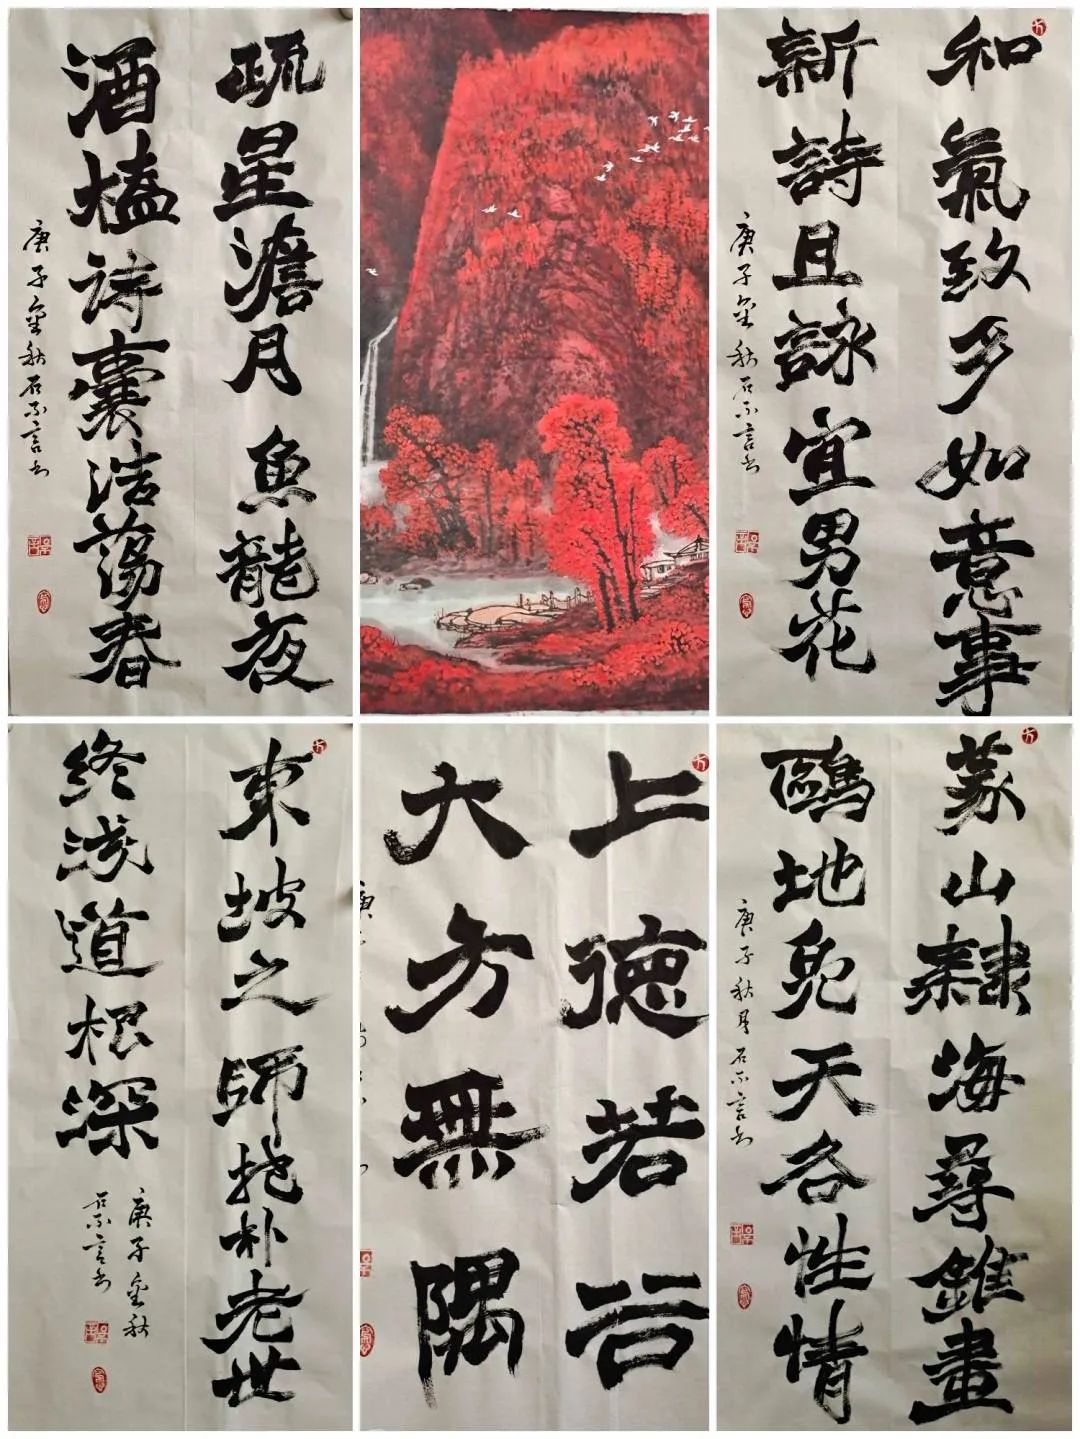 疏星澹月魚龍夜
酒榼詩囊浩蕩春
庚子金秋石不言书
和氣致多如意事
新詩且詠宜男花
庚子金秋石不言书
東坡之師抱朴老世
終淺道根深
庚子金秋
石不言书
上德若谷
大方無隅
庚
篆山隸海尋錐畫
鷗地鳧天各性情
庚子秋月石不言书